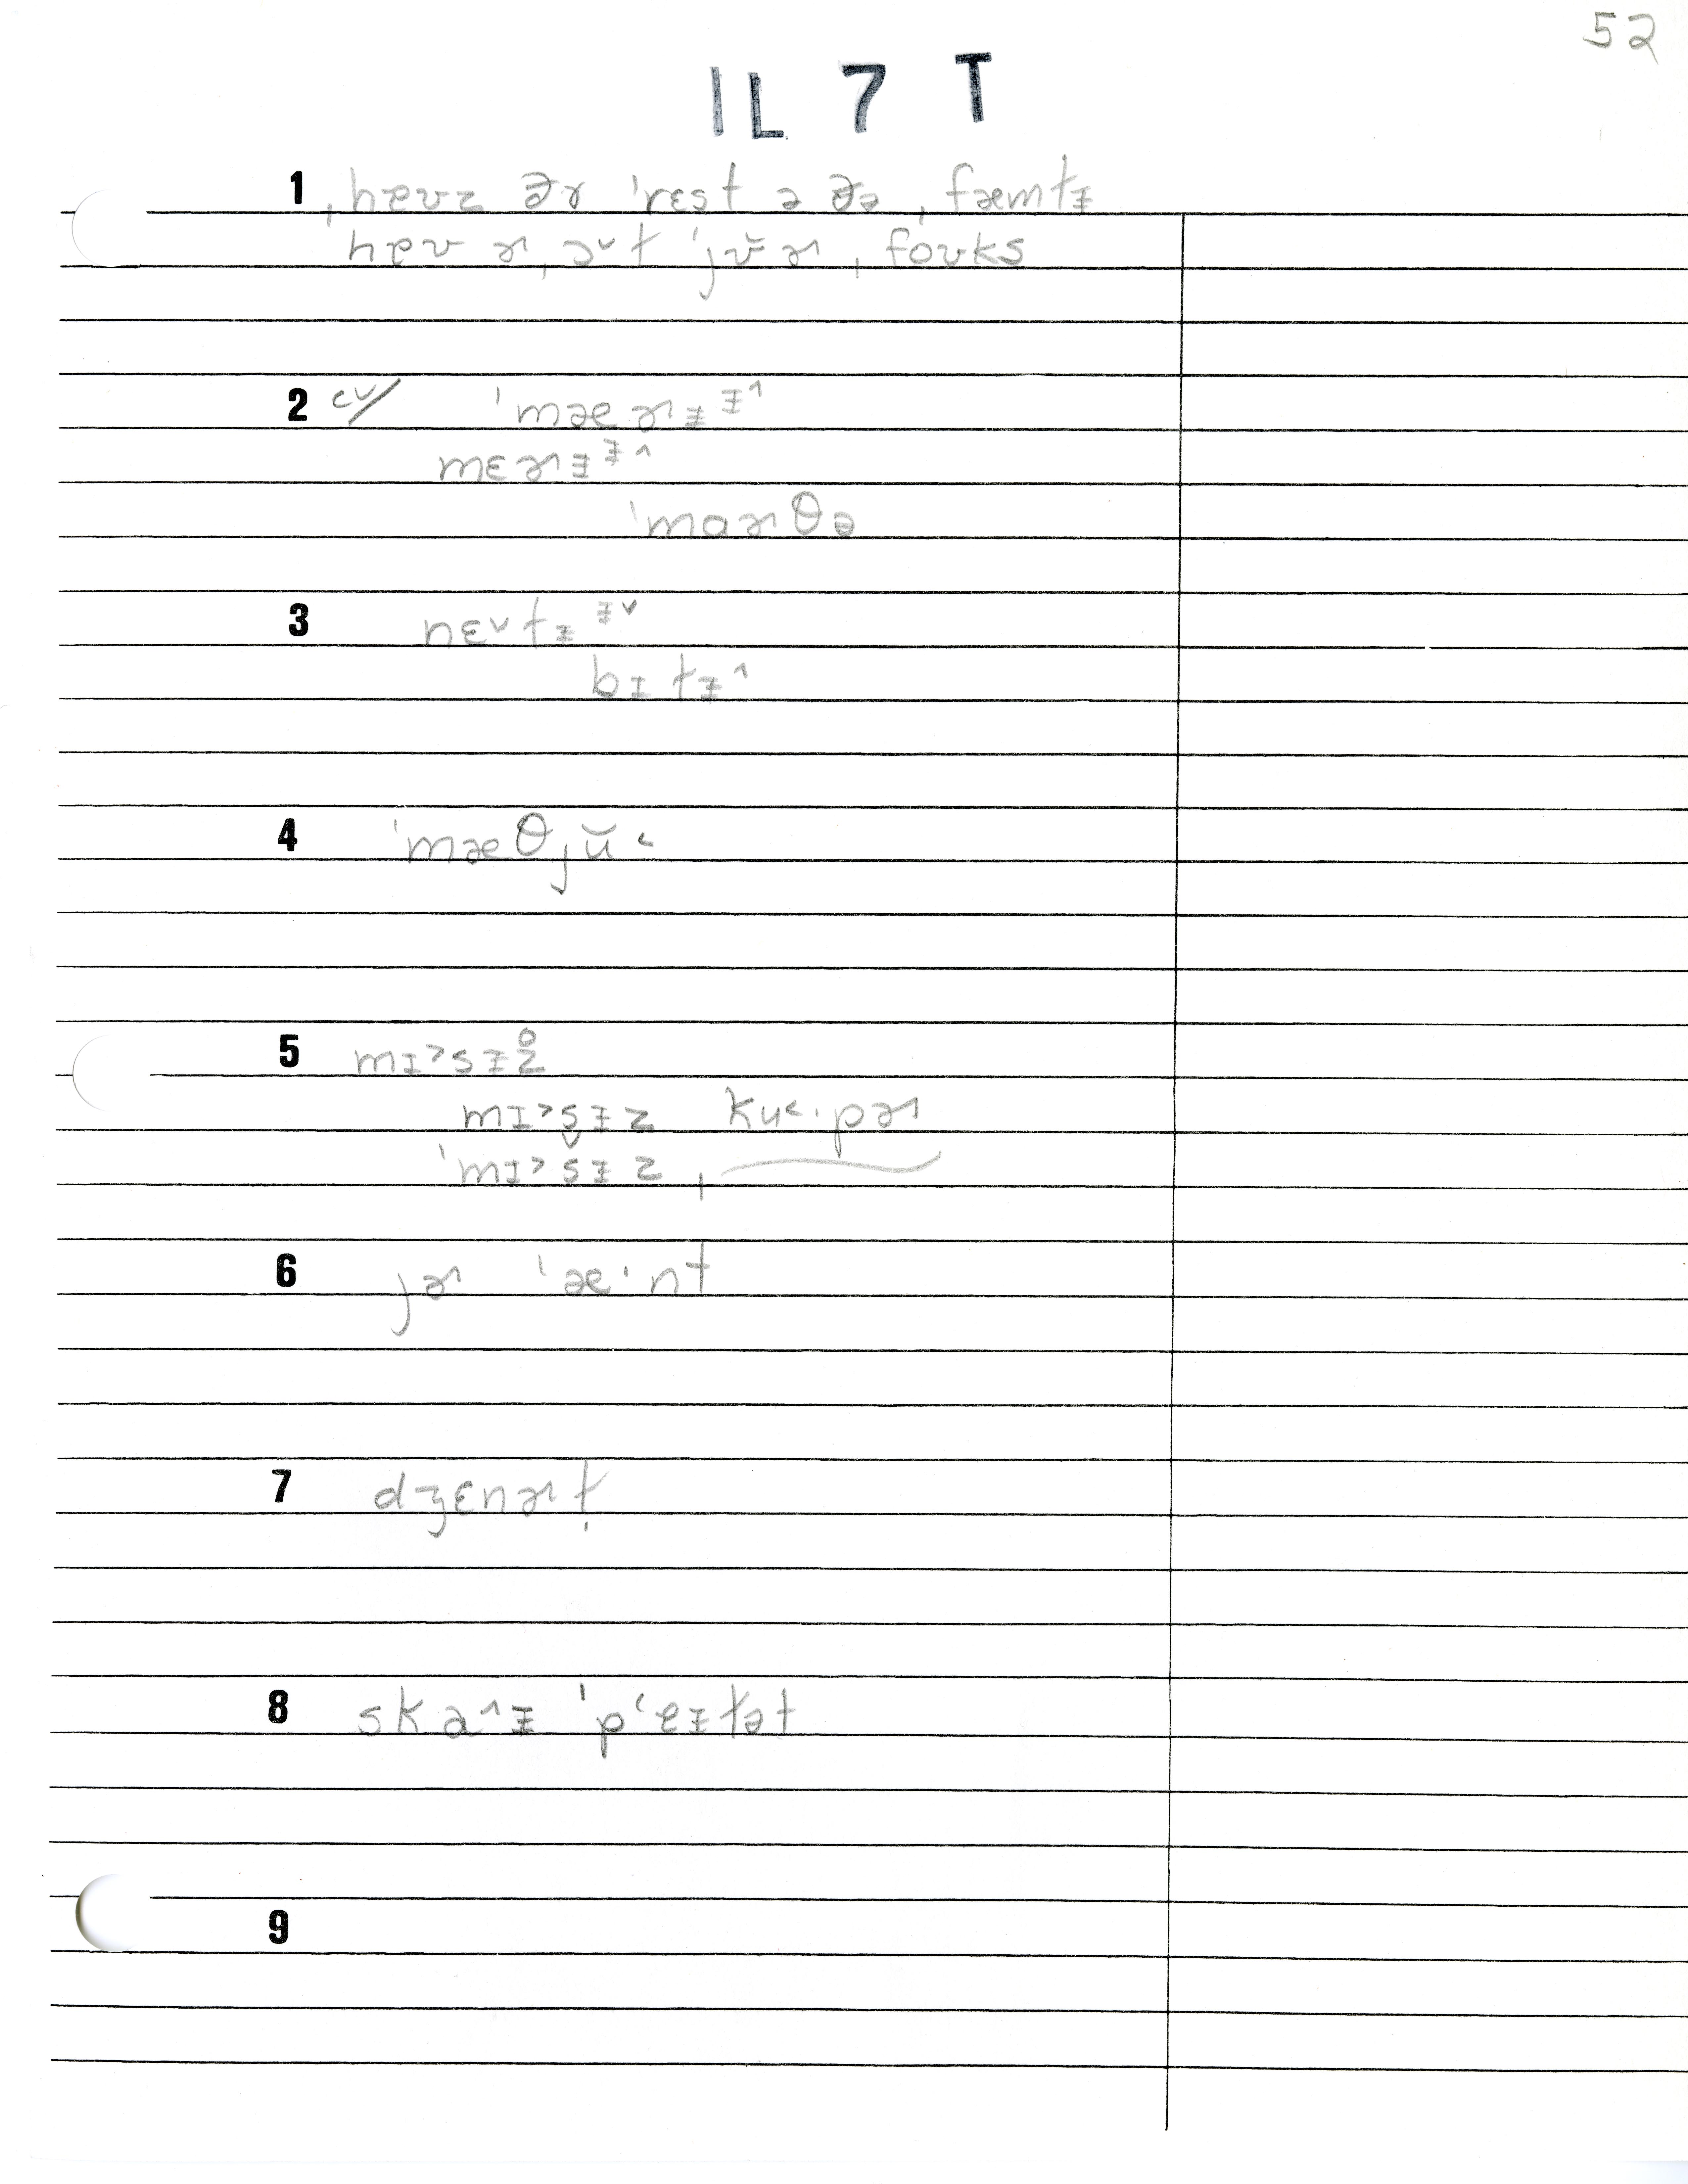 52
IL 7 T
1 ˌhɐʊz ðɚ ˈrɛst ə ðə ˌfæmɫɪ̵
hɐʊ ɚˌɔ˅ɫ ˈjʊ̆ɚ ˌfoʊks
2 cv/ ˈmæɚɪ̵ ɪ̵˄
mɛɚɪ̵ ɪ̵˄
ˈmɑɚθə
3 nɛ˅ɫɪ̵ ɪ̵˅
bɪɫɪ̵˄
4 ˈmæθˌjŭ˂
5 mɪ˃sɪ̵z̥
mɪ˃s̬ɪ̵z ku˂·pɚ
ˈmɪ˃sɪ̵z ˌ
6 jɚ ˈæ·nt
7 dʒɛnɚɫ̩
8 skɑ˄ɪ̵ ˈpʻɐɪ̵ɫət
9